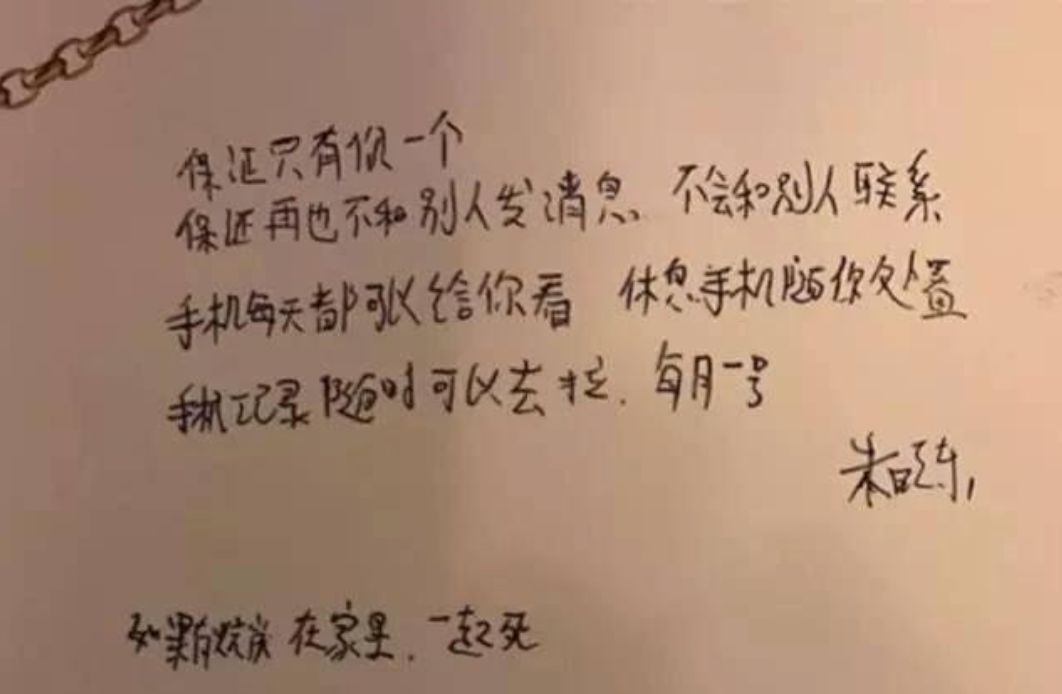 保证只有你一个
保证再也不和别人发消息 不会和别人联系
手机每天都可以给你看 休息手机随你处置
手机记录随时可以去拉. 每月一号
朱晓东,
如果有发火 在家里. 一起死